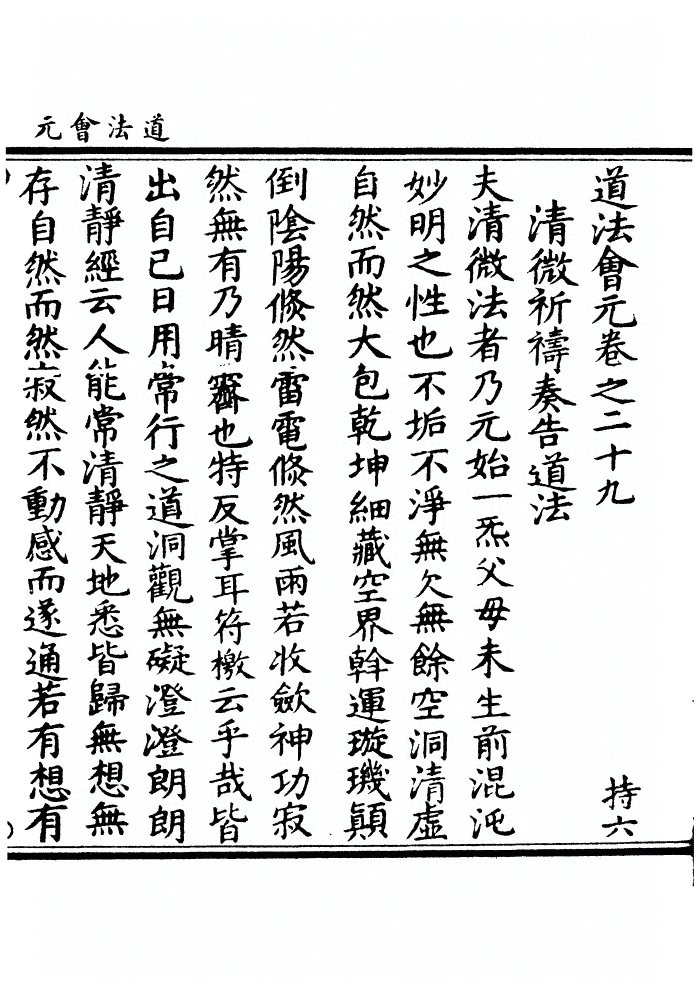 道法會元
道法會元卷之二十九 持六
清微祈禱奏告道法
夫清微法者乃元始一炁父母未生前混沌
妙明之性也不垢不淨無欠無餘空洞清虛
自然而然大包乾坤細藏空界斡運璇璣顛
倒陰陽倐然雷電倐然風雨若收歛神功寂
然無有乃晴霽也特反掌耳符檄云乎哉皆
出自己日用常行之道洞觀無礙澄澄朗朗
清靜經云人能常清靜天地悉皆歸無想無
存自然而然寂然不動感而遂通若有想有